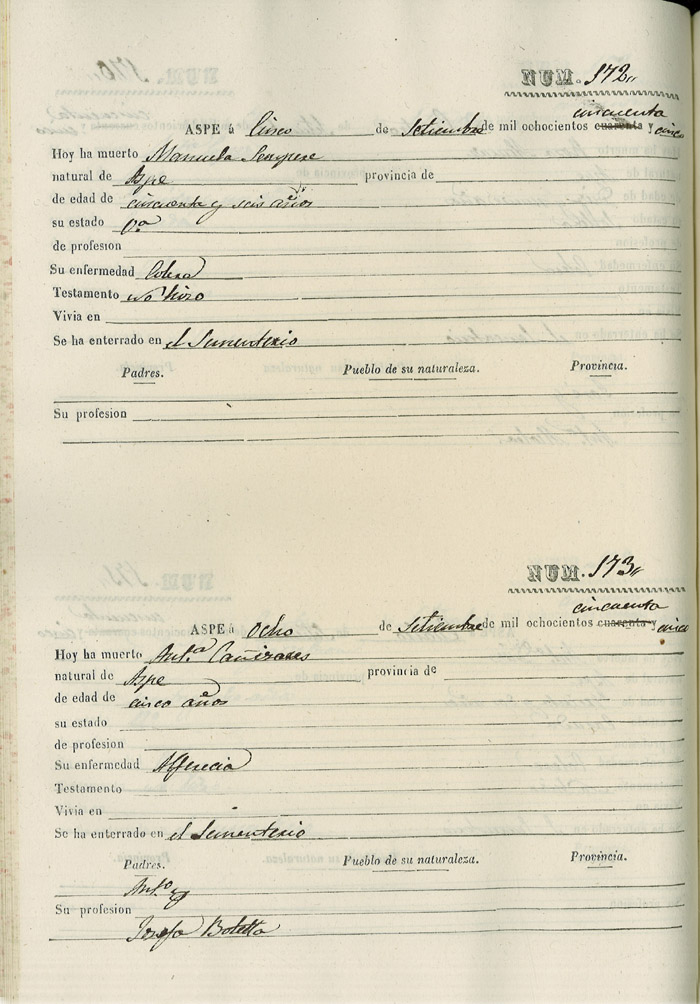 NUM. 172,,
cincuenta
ASPE á Cinco de Setiembre de mil ochocientos cuarenta y cinco
Hoy ha muerto Manuela Sempere
natural de Aspe provincia de
de edad de cincuenta y seis años
su estado Vª
de profesion
Su enfermedad Colera
Testamento no hizo
Vivia en
Se ha enterrado en el Sementerio
Padres. Pueblo de su naturaleza. Provincia.
Su profesion
NUM. 173,,
cincuenta
ASPE á Ocho de Setiembre de mil ochocientos cuarenta y cinco
Hoy ha muerto Antª Cañizares
natural de Aspe provincia de
de edad de cinco años
su estado
de profesion
Su enfermedad Alferecia
Testamento
Vivia en
Se ha enterrado en el Sementerio
Padres. Pueblo de su naturaleza. Provincia.
Antº y
Su profesion
Josefa Botella